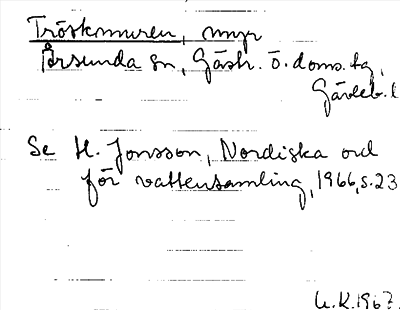 Tröskomuren, myr
Årsunda sn, Gästr. ö. doms.tg,
Gävleb. l
Se H. Jonsson, Nordiska ord
för vattensamling, 1966, s. 23
U.K. 1967.